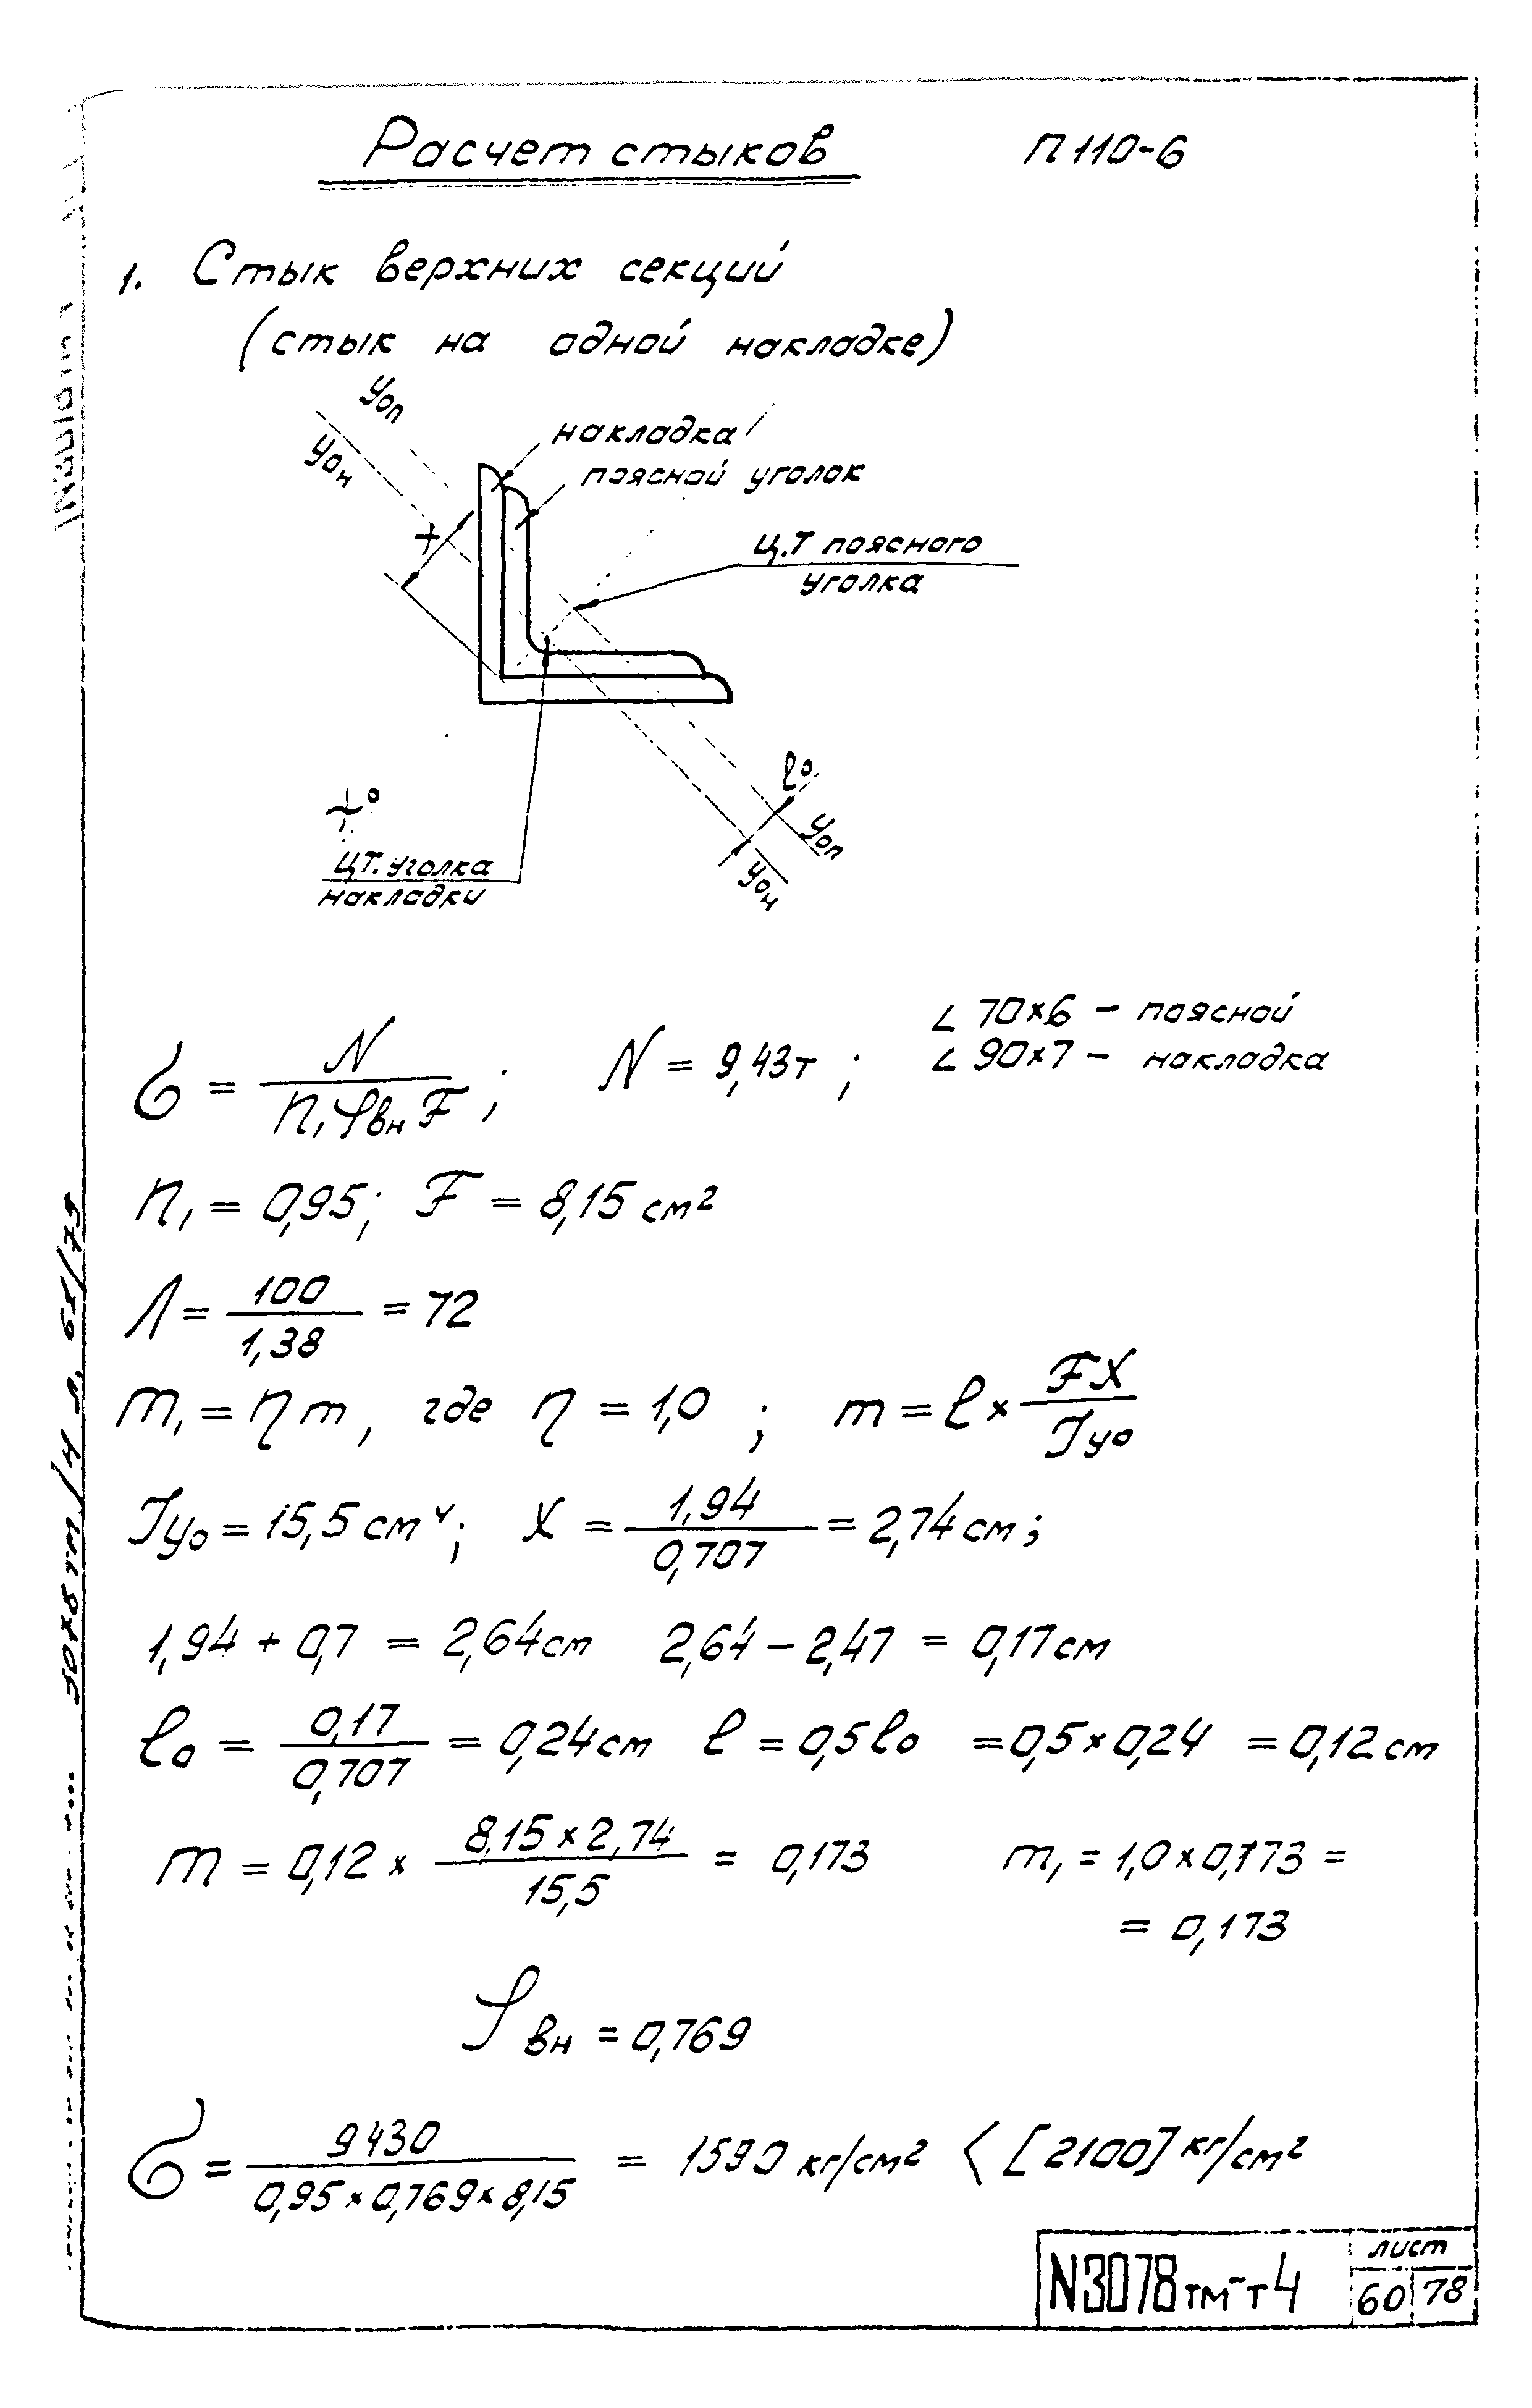 Расчет стыков П110-6
1. Стык верхних секций
(стык на одной накладке)
Уоп
Уон
накладка
поясной уголок
х
Ц.Т поясного
уголка
lо
Уоп
Уон
ЦТ. уголка
накладки
∟ 70×6 – поясной
∟ 90×7 – накладка
σ = N / n₁ φвн F ; N = 9,43т ;
n₁ = 0,95; F = 8,15 см²
Λ = 100 / 1,38 = 72
m₁ = η m, где η = 1,0 ; m = l × FX / Jуо
Jуо = 15,5 см⁴; X = 1,94 / 0,707 = 2,74 см;
1,94 + 0,7 = 2,64 см 2,64 – 2,47 = 0,17 см
lо = 0,17 / 0,707 = 0,24 см l = 0,5 lо = 0,5 × 0,24 = 0,12 см
m = 0,12 × 8,15 × 2,74 / 15,5 = 0,173 m₁ = 1,0 × 0,173 =
= 0,173
φвн = 0,769
σ = 9430 / 0,95 × 0,769 × 8,15 = 1590 кг/см² < [2100] кг/см²
N3078тм-т4
лист
60 78
3078тм/4 л. 61/79